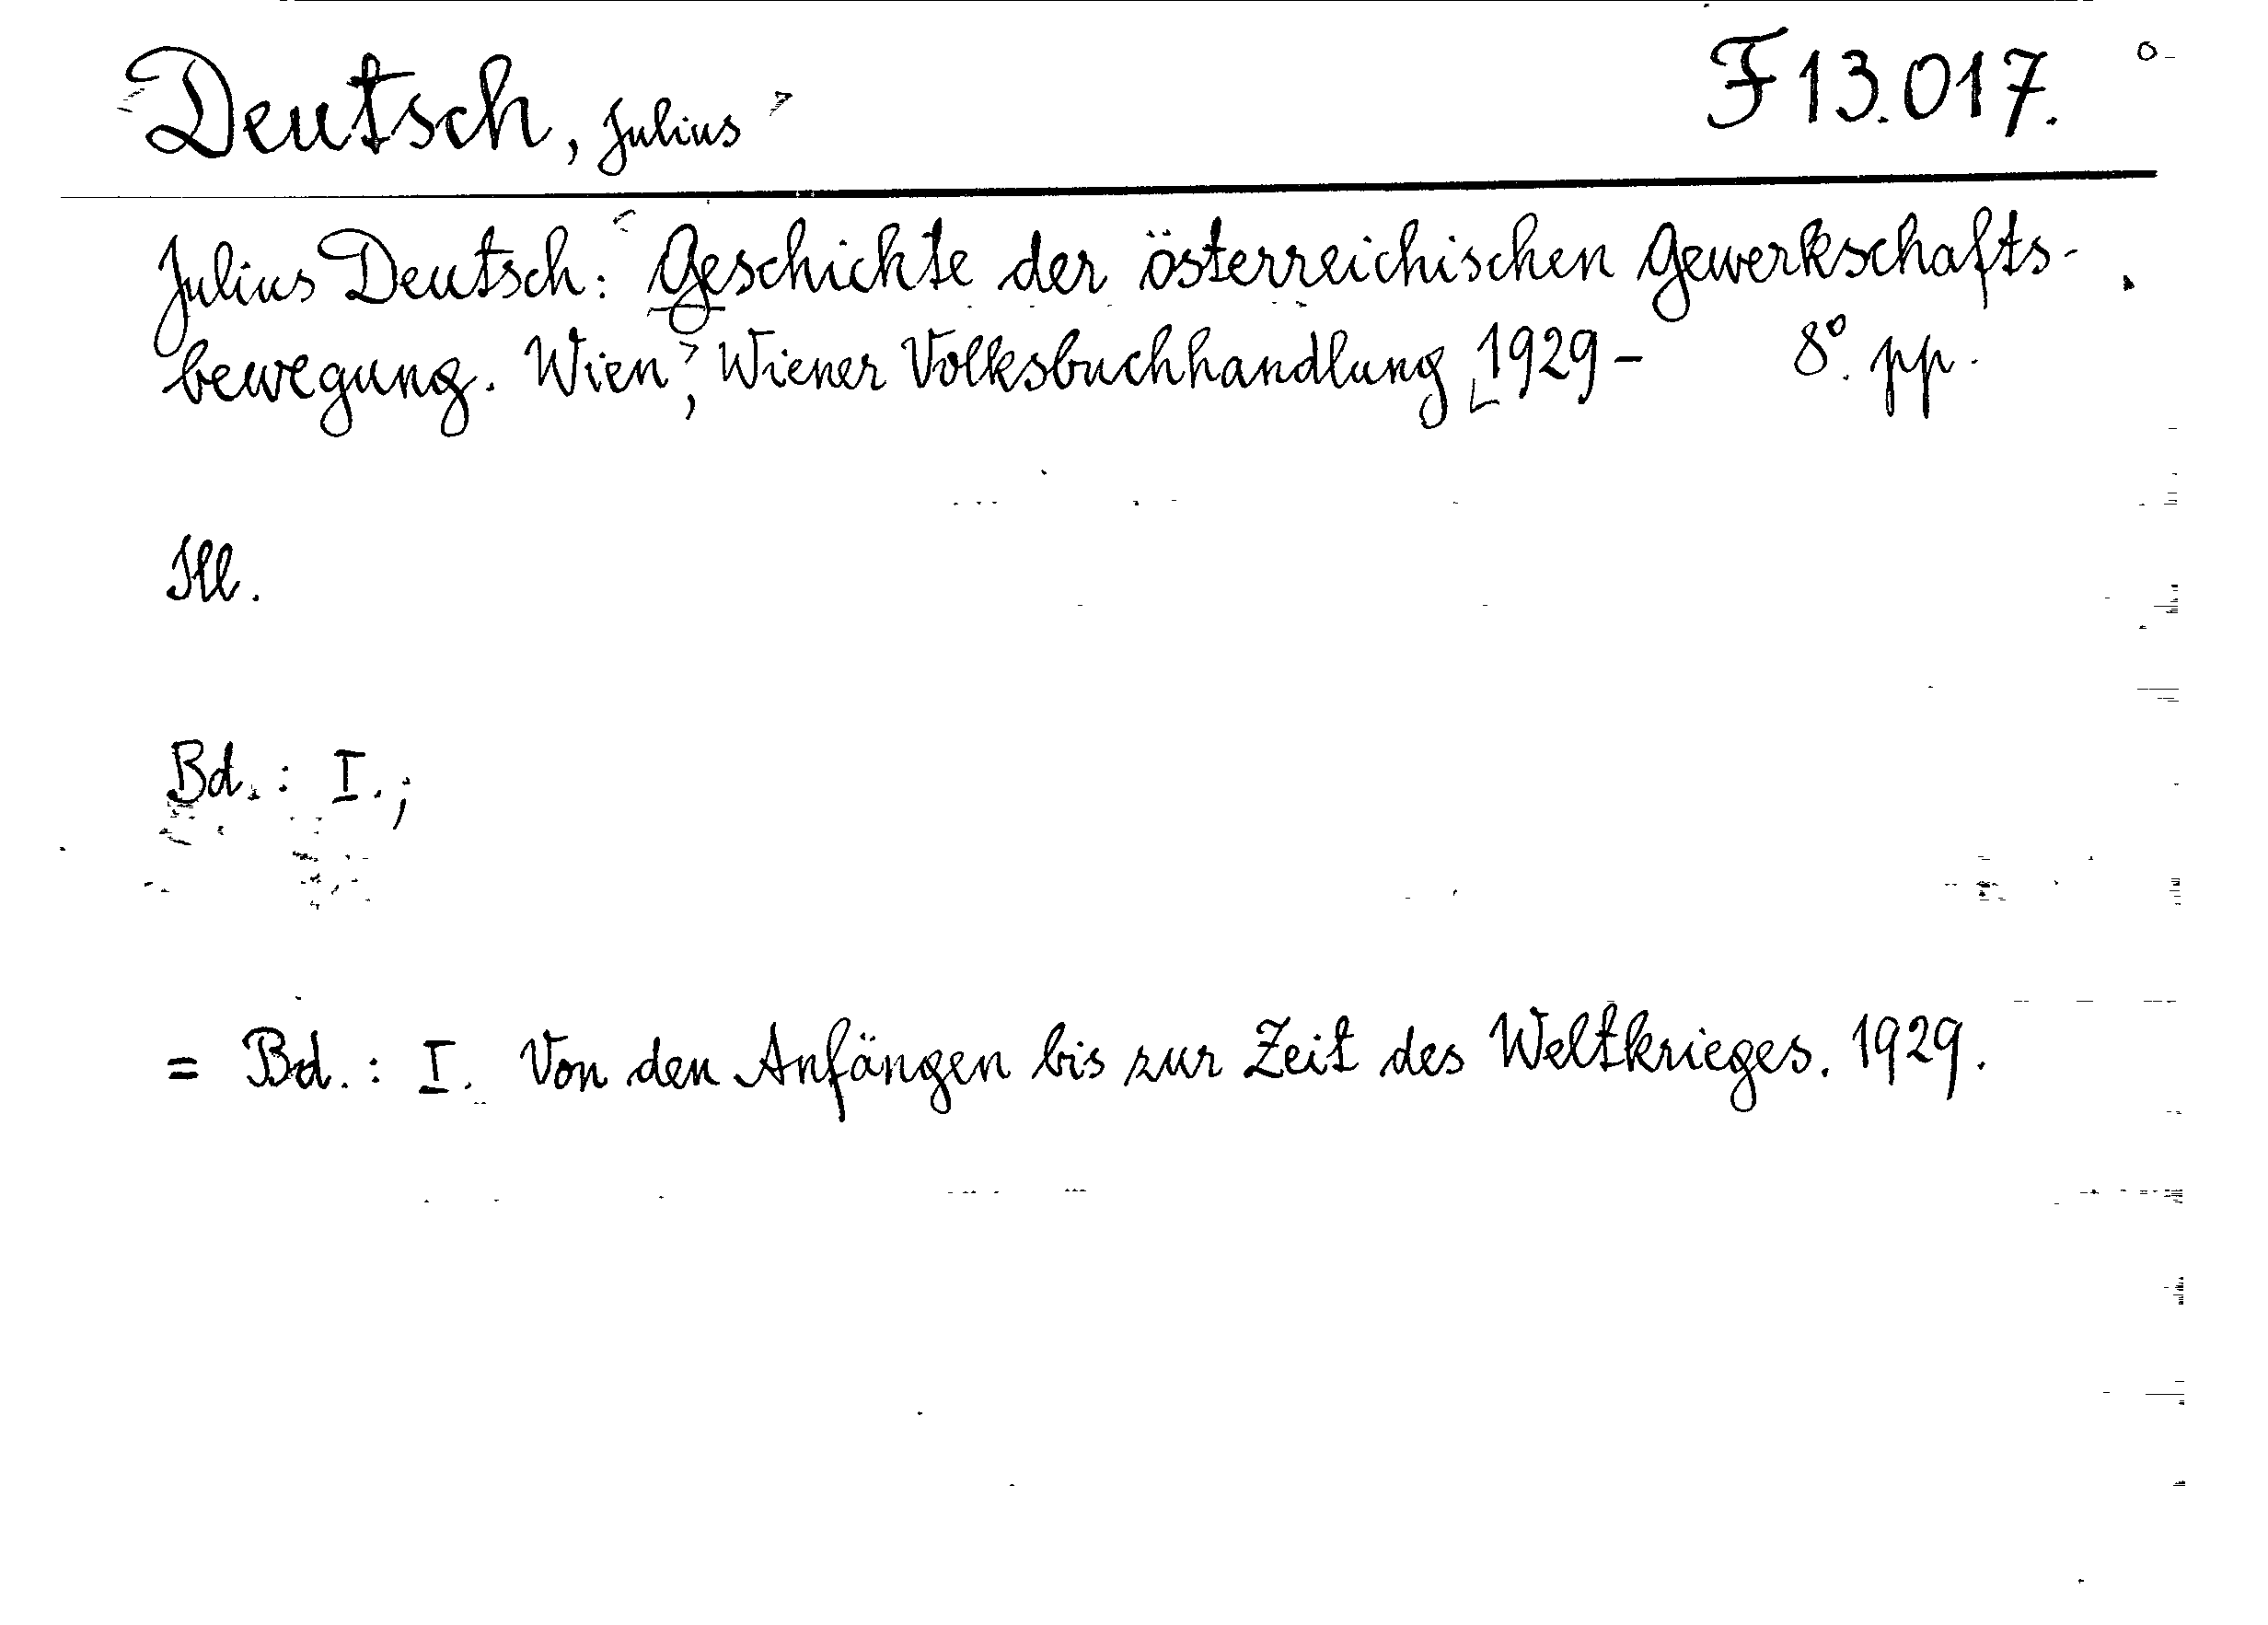 Deutsch, Julius F 13.017.
Julius Deutsch: Geschichte der österreichischen Gewerkschafts-
bewegung. Wien, Wiener Volksbuchhandlung 1929- 8°. pp.
Ill.
Bd.: I.;
= Bd.: I. Von den Anfängen bis zur Zeit des Weltkrieges. 1929.